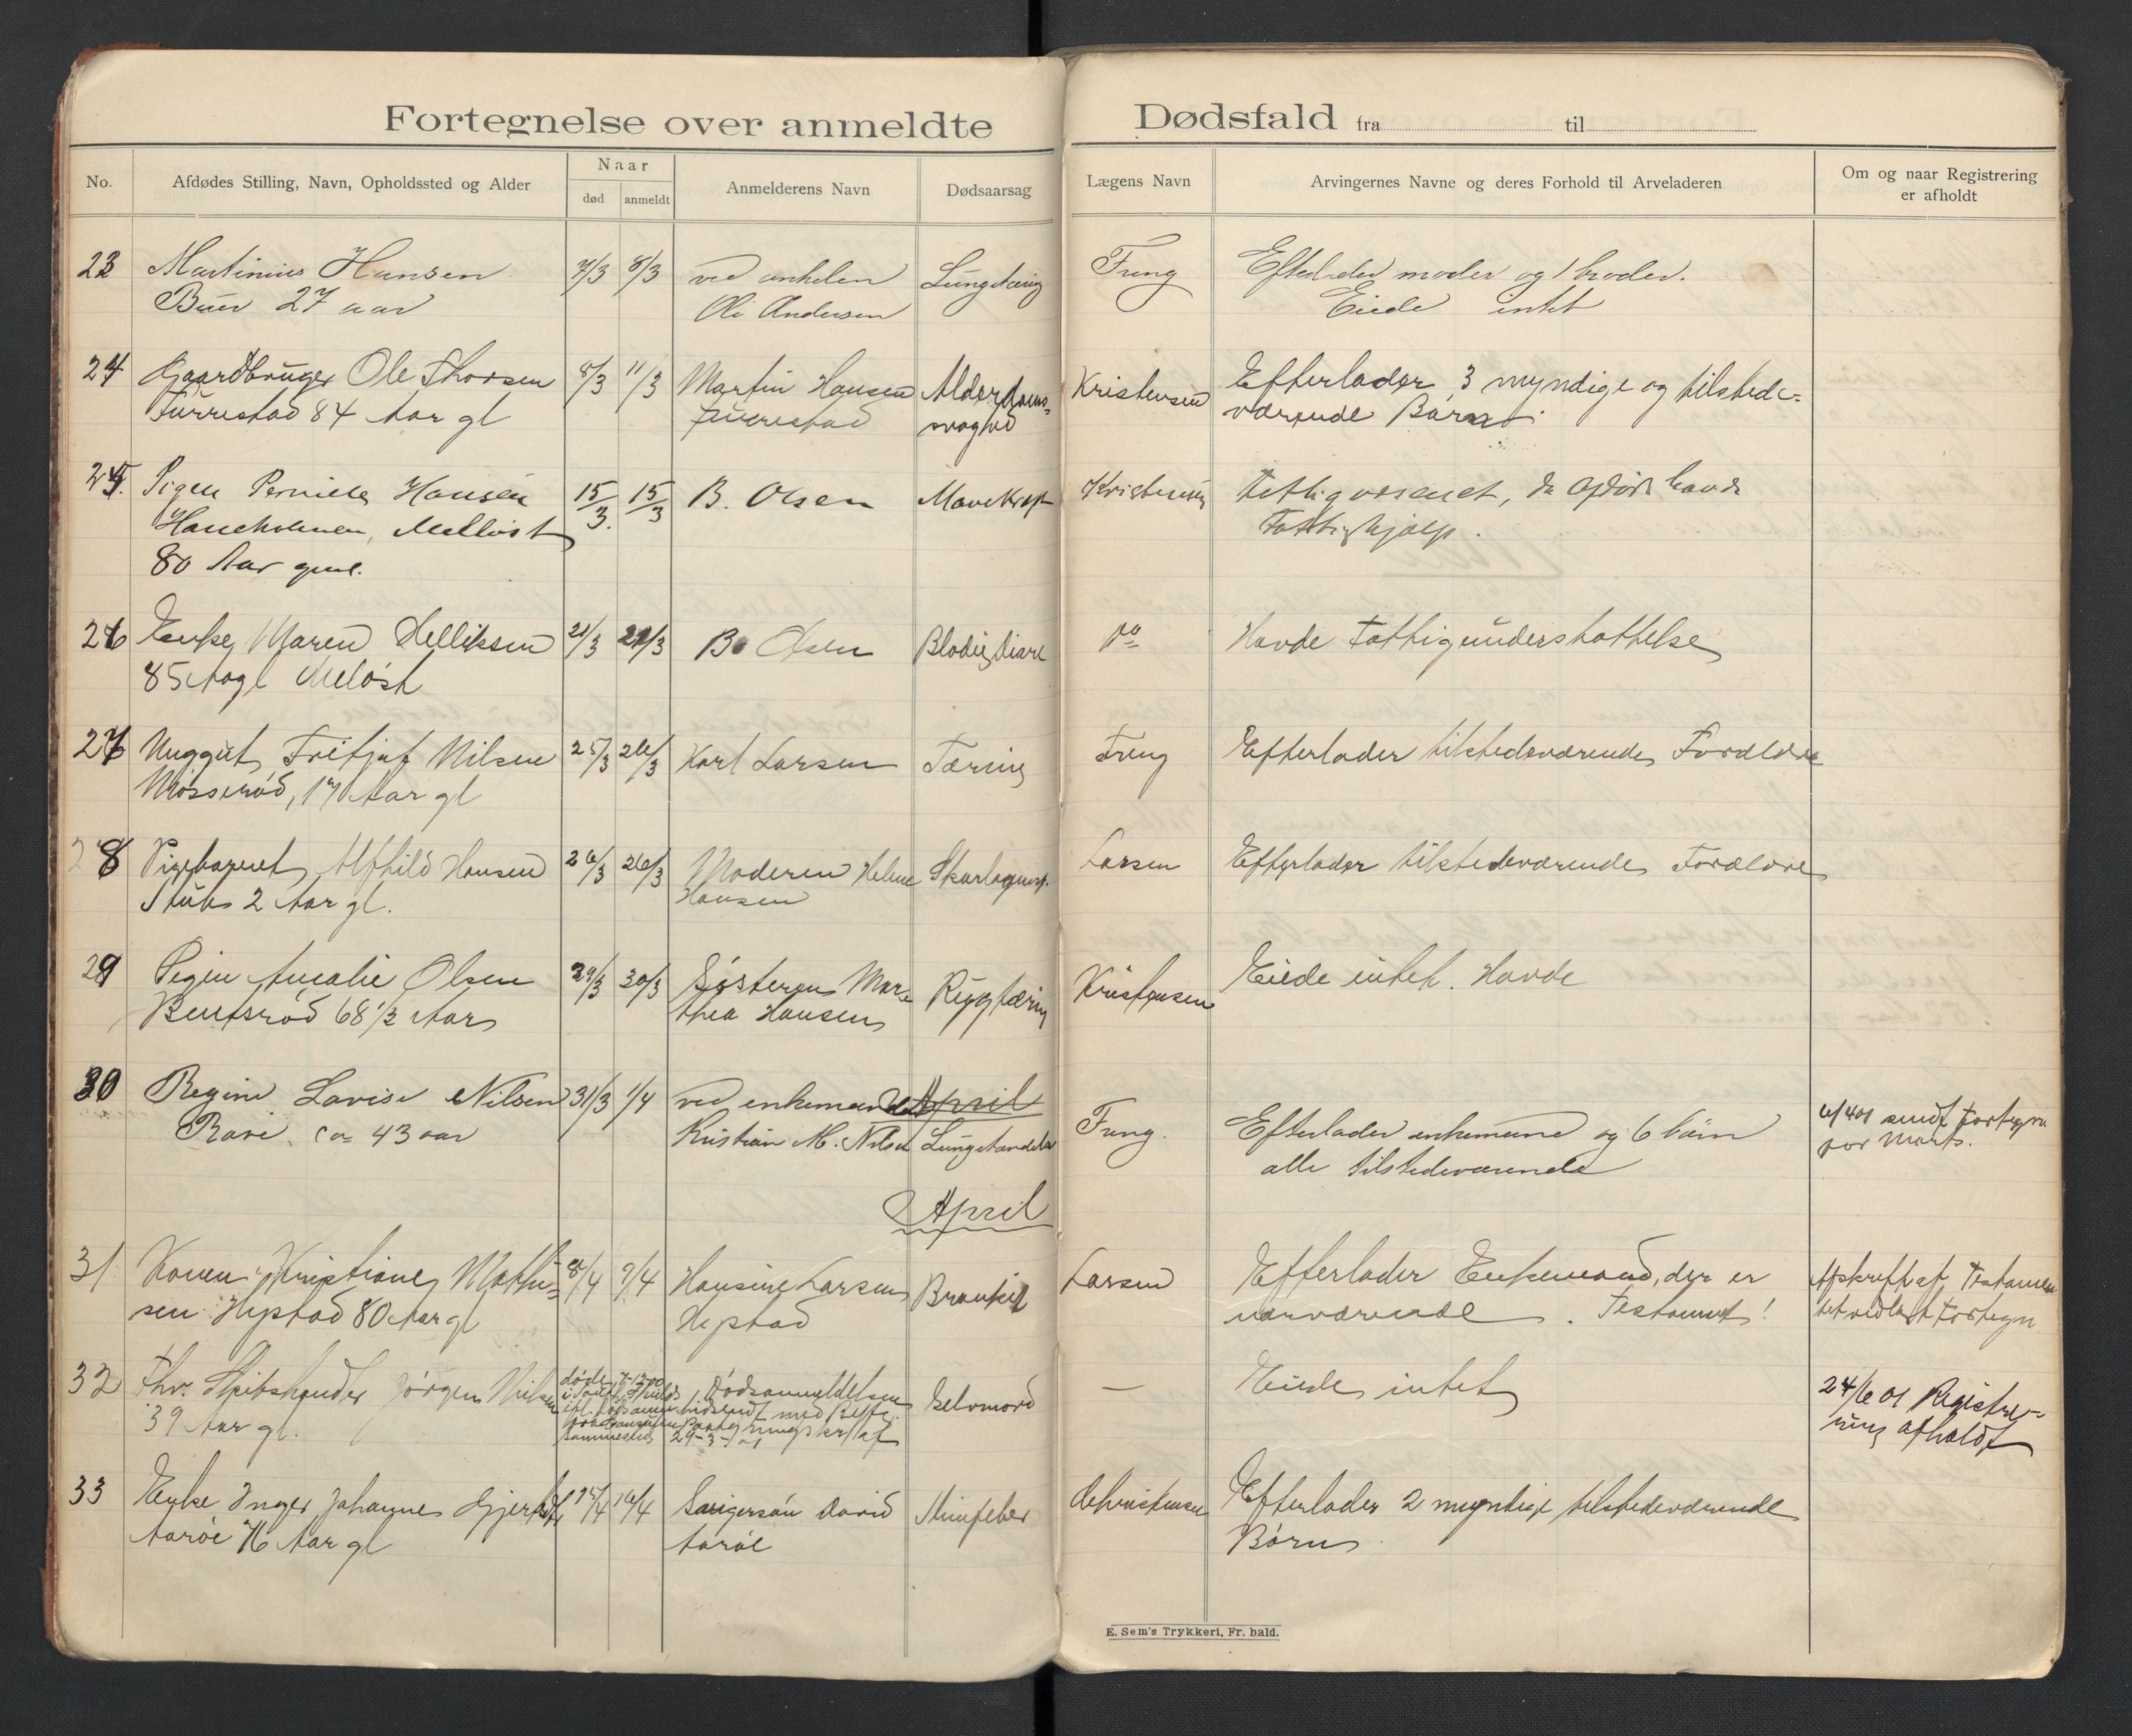 Fortegnelse over anmeldte Dødsfald fra til
No. Afdødes Stilling, Navn, Opholdssted og Alder Naar død anmeldt Anmelderens Navn Dødsaarsag Lægens Navn Arvingernes Navne og deres Forhold til Arveladeren Om og naar Registrering er afholdt
23 Martinius Hansen 7/3 8/3 ved onkelen Lungetæring Efterlader moder og 1 broder.
27 aar Ole Andersen Eiede intet
24 Gaardbruger Ole Thorsen 8/3 11/3 Martin Hansen Alderdoms- Kristensen Efterlader 3 myndige og tilstede-
Furrestad 84 Aar gl Furrestad svaghed værende Børn.
25. Pigen Pernille Hansen 15/3. 15/3 B. Olsen Mavekræft Kristensen Fattigvæsenet, da Afdøde havde
Melløst Fattighjælp.
80 Aar gml.
26 Enke Maren Helliksen 21/3 21/3 B. Olsen Blodig diare do Havde Fattigunderstøttelse
85 Aar gl Meløst
27 Unggut Fritjof Nilsen 25/3 26/3 Karl Larsen Tæring Efterlader tilstedeværende Forældre
17 Aar gl
28 Pigebarnet Alfhild Hansen 26/3 26/3 Moderen Helene Skarlagensf. Larsen Efterlader tilstedeværende Forældre
Stub 2 Aar gl. Hansen
29 Pigen Amalie Olsen 29/3 30/3 Søsteren Mar- Rygtæring Kristensen Eiede intet. Havde
Berntsrød 68 1/2 Aar thea Hansen
30 Regine Lovise Nilsen 31/3 1/4 ved enkemanden April Efterlader enkemand og 6 børn 4/4 01 sendt Fortegn.
Ravei ca 43 aar Kristian M. Nilsen Lungebetændelse alle tilstedeværende for Marts.
April
31 Konen Kristiane Mathi- 8/4 9/4 Hansine Larsen Bronkit Larsen Efterlader Enkemand, der er Afskrift af Testamen
sen Hystad 80 Aar gl Hystad nærværende. Testament! tet vedlagt Fortegn
32 Fhv. Skibstænder Jørgen Nilsen Dødsanmeldelsen Selvmord — Eiede intet 24/6 01 Registre-
39 Aar gl. 29-3-01 ring afholdt
33 Enke Inger Johanne Gjertsen 15/4 16/4 Svigersøn David Christensen Efterlader 2 myndige tilstedeværende
Aarøe 76 Aar gl Aarøe Børn
E. Sem's Trykkeri, Fr. hald.